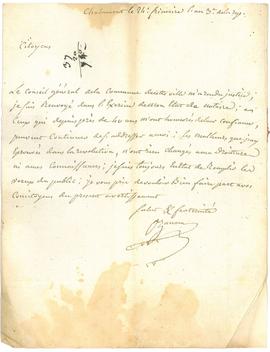 Chalamont le 24e frimaire l'an 3e de la rep.
Citoyens
Le Conseil général de la Commune de cette ville m'a rendu justice;
je suis Renvoyé dans l'exercice de mon Etat de notaire;
Ceux qui depuis près de 40 ans m'ont honorés de leur confiance,
peuvent Continuer de s'addresser à moi; les
éprouvés dans la révolution, n'ont rien changé a ma droiture
ni a mes Connoissances; je suis toujours de Remplir les
voeux du public; je vous prie de vouloir bien faire part a vos
Concitoyens du présent avertissement
Salut & fraternité